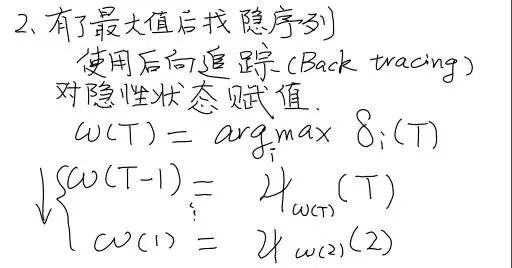 2、有了最大值后找隐序列
使用后向追踪(Back tracing)
对隐性状态赋值.
ω(T) = argmax_i δ_i(T)
↓{ω(T-1) = ψ_ω(T)(T)
⋮
ω(1) = ψ_ω(2)(2)